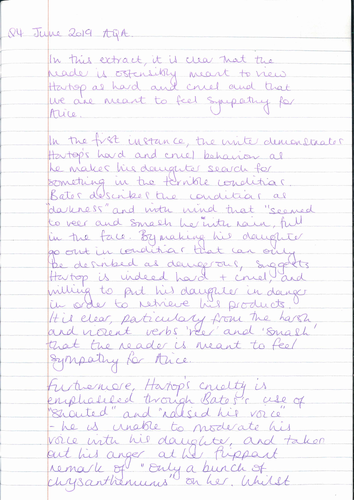 Q4 June 2019 AQA
In this extract, it is clear that the
reader is ostensibly meant to view
Hartop as hard and cruel and that
we are meant to feel sympathy for
Alice.
In the first instance, the writer demonstrates
Hartop's hard and cruel behavior as
he makes his daughter search for
something in the terrible conditions.
Bates describes the conditions as
"darkness" and with wind that "seemed
to veer and smash her with rain, full
in the face. By making his daughter
go out in conditions that can only
be described as dangerous, suggests
Hartop is indeed hard + cruel, and
willing to put his daughter in danger
in order to retrieve his products.
It is clear, particularly from the harsh
and violent verbs 'veer' and 'smash'
that the reader is meant to feel
sympathy for Alice.
Furthermore, Hartop's cruelty is
emphasised through Bates's use of
"shouted" and "raised his voice"
- he is unable to moderate his
voice with his daughter, and takes
out his anger at her flippant
remark of "only a bunch of
chrysanthemums" on her. Whilst